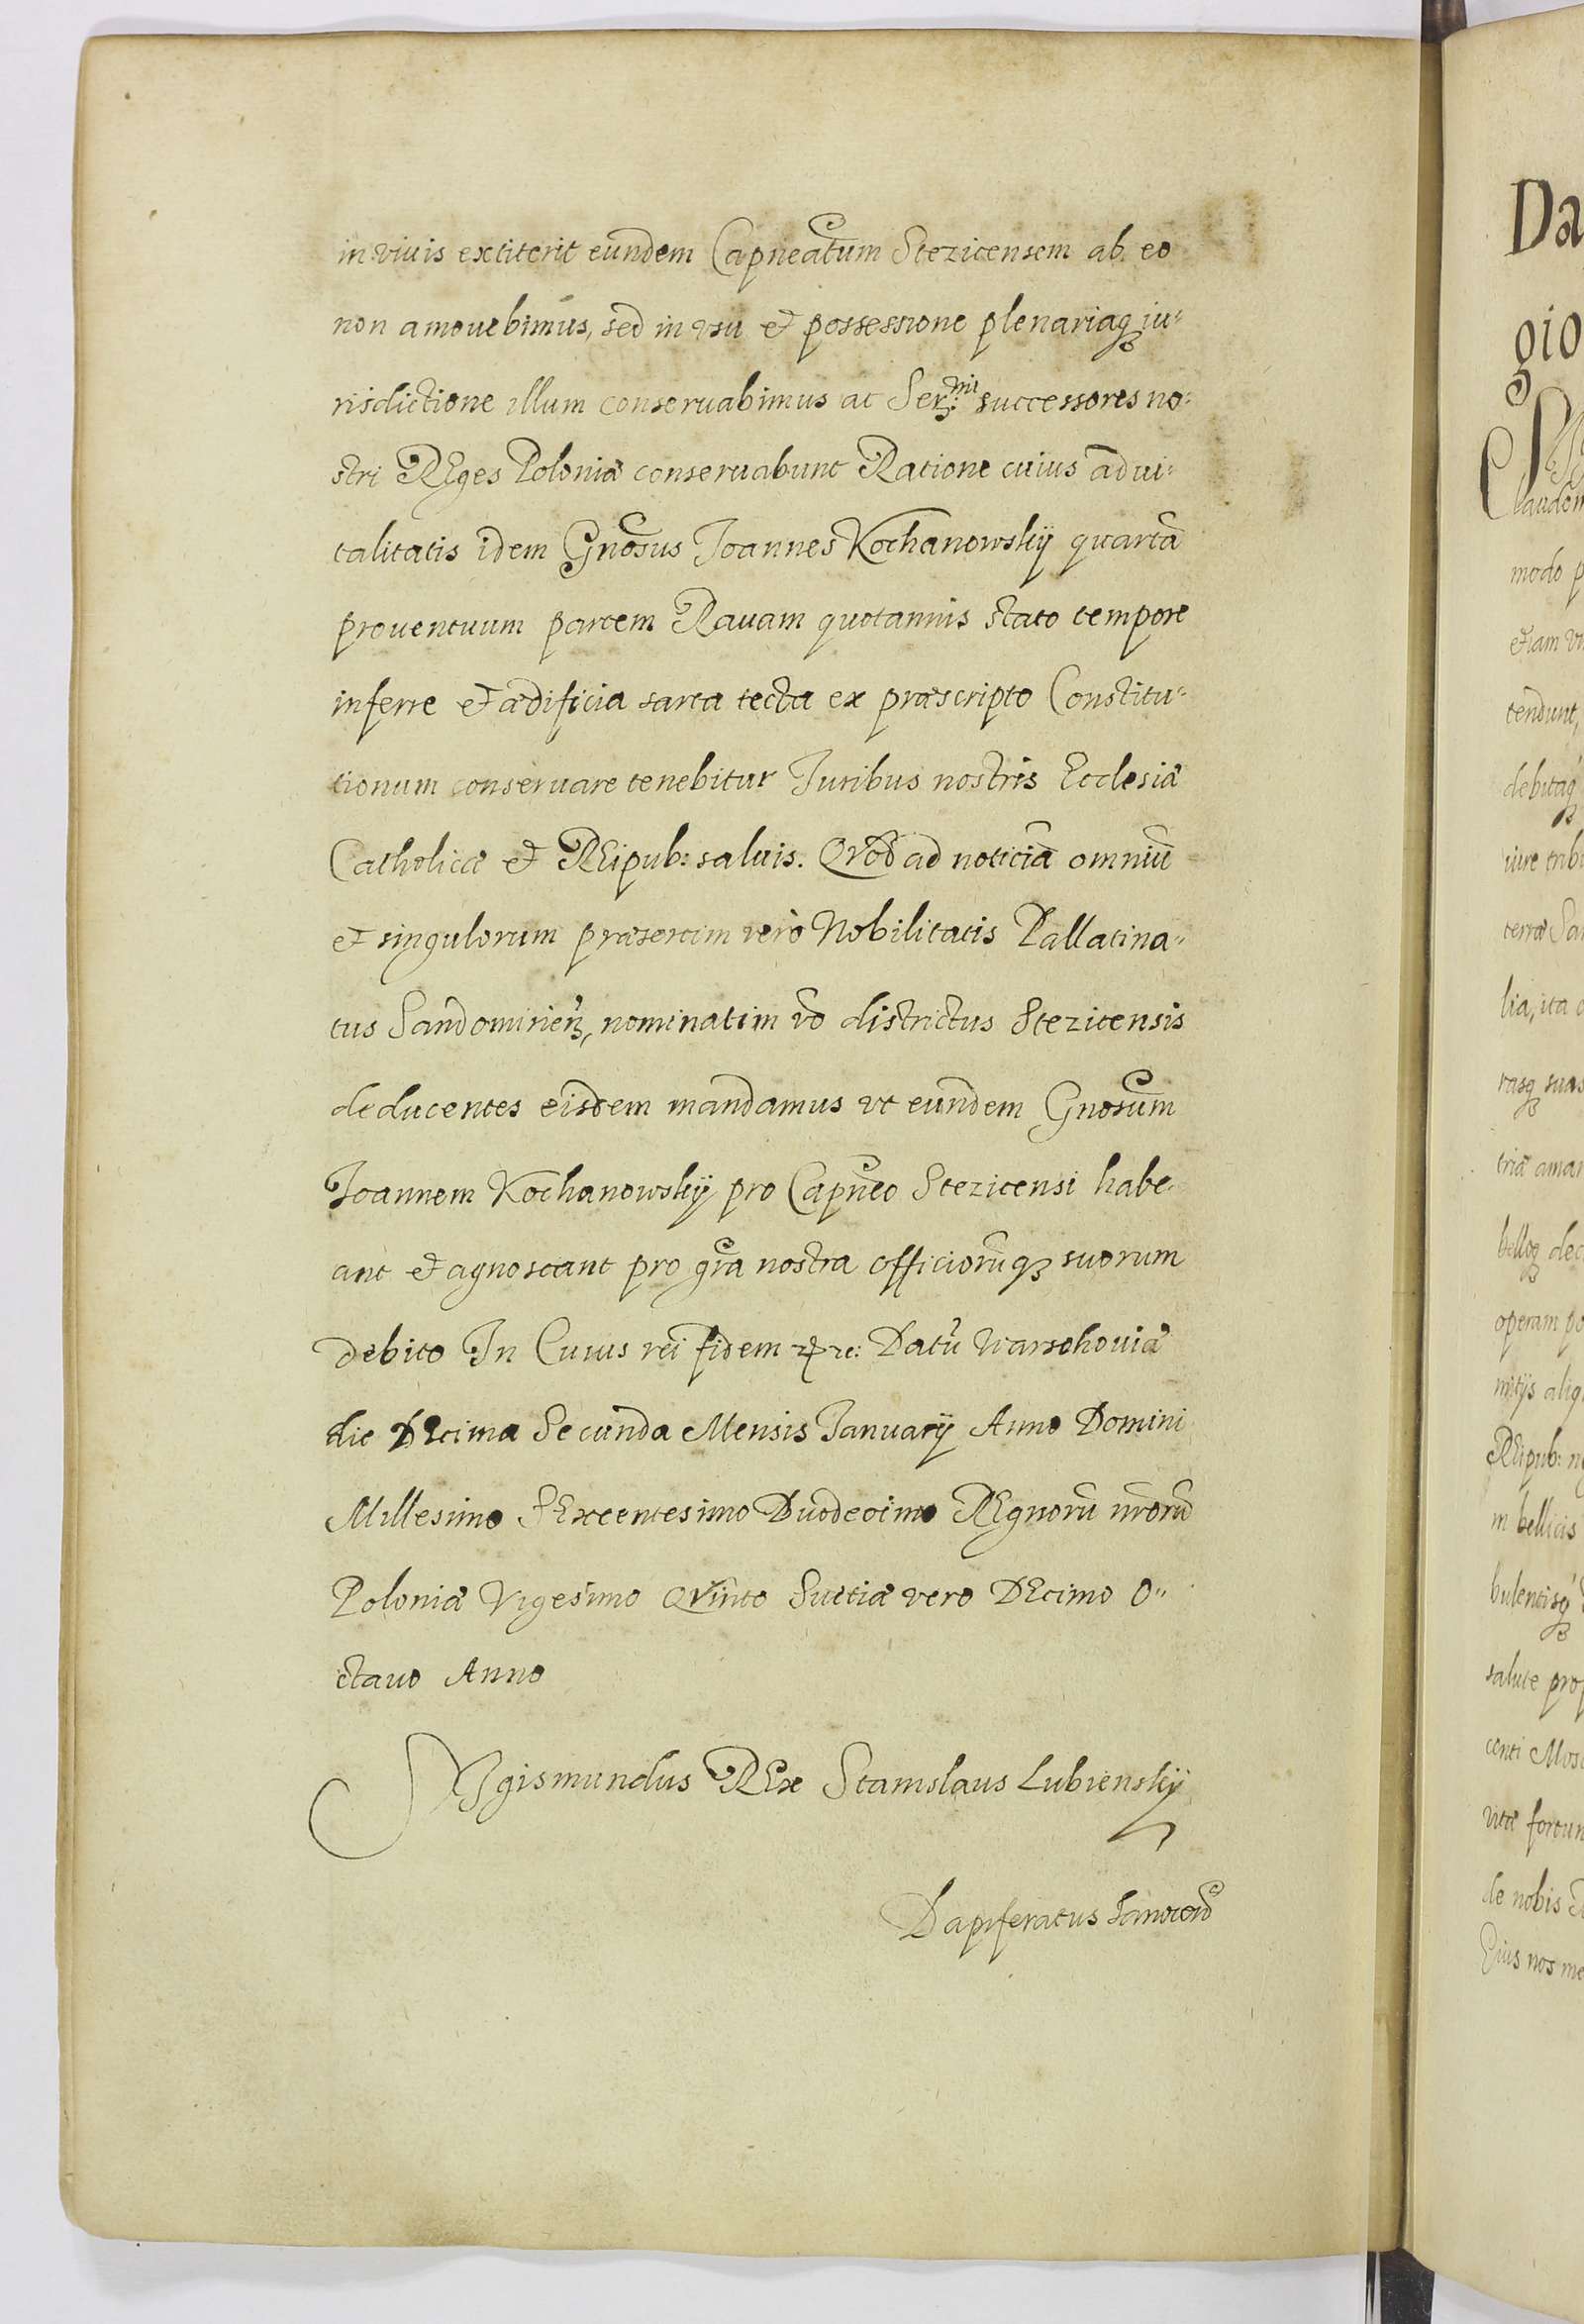 in vivis extiterit eundem Capneatum Stezicensem ab eo
non amovebimus, sed in vsu et possessione plenariaq3 iu-
risdictione illum conservabimus ac Ser:mi successores no-
stri REges Poloniæ conservabunt Ratione cuius advi-
talitatis idem Gnosus Joannes Kochanowskÿ quartã
proventuum partem Ravam quotannis stato tempore
inferre et ædificia sarta tecta ex præscripto Constitu-
tionum conservare tenebitur Juribus nostris Ecclesiæ
Catholicæ et REipub: salvis. QVod ad noticiã omniũ
et singulorum præsertim verò Nobilitatis Pallatina-
tus Sandomirien̄, nominatim v̄o districtus Stezicensis
deducentes eisdem mandamus vt eundem Gnosum
Joannem Kochanowskÿ pro Capneo Stezicensi habe-
ant et agnoscant pro gr̄a nostra officiorũq3 suorum
debito In Cuius rei fidem etc: Datũ Warschoviæ
die DEcima Secunda Mensis Januarÿ Anno Domini
Millesimo SExcentesimo Duodecimo REgnorũ nr̄orũ
Poloniæ Vigesimo QVinto Suetiæ vero DEcimo o-
ctavo Anno
SIgismundus REx Stanislaus Lubienskÿ
Dapiferatus
Da
gio
laudem
modo p
etiam
tendunt,
debitaq3
iure trib
terræ Sa
lia, ita
rasq3 suas
triæ aman
belloq3 dec
operam po
mitÿs aliq
REipub: n
in bellicis
bulentisq3
salute prop
centi Mos
vitæ fortun
de nobis
Eius nos me